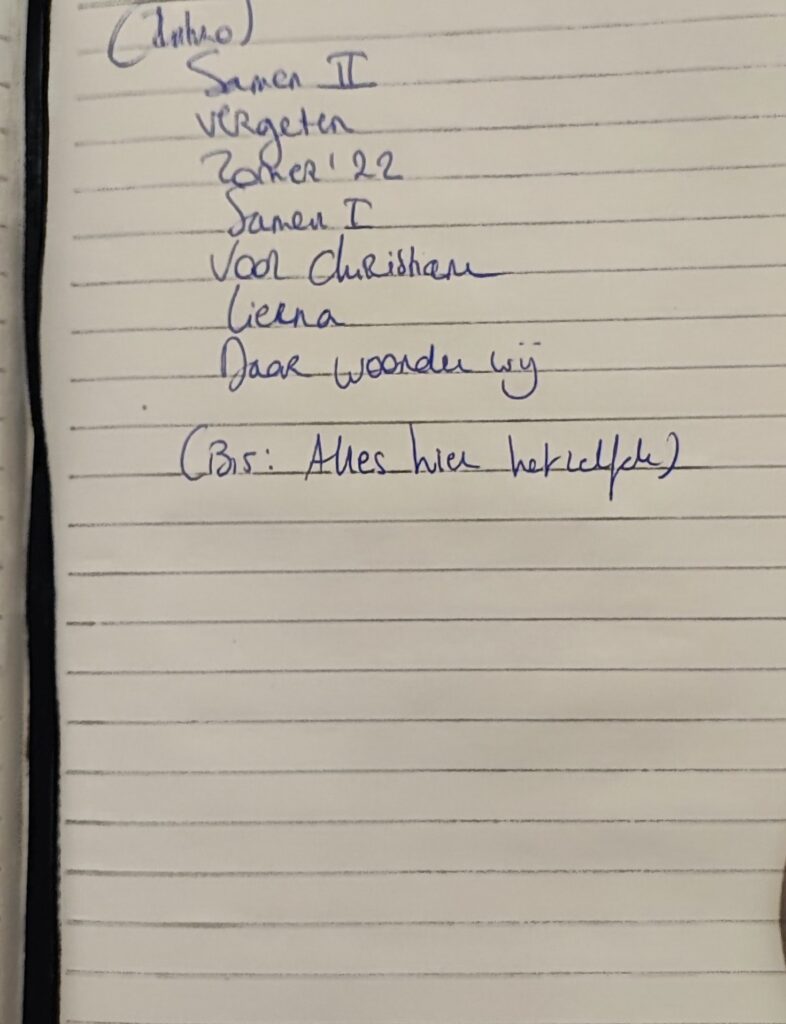 (Intro)
Samen II
Vergeten
Zomer '22
Samen I
Voor Christiane
Lierna
Daar woonden wij
(Bis: Alles hier hetzelfde)